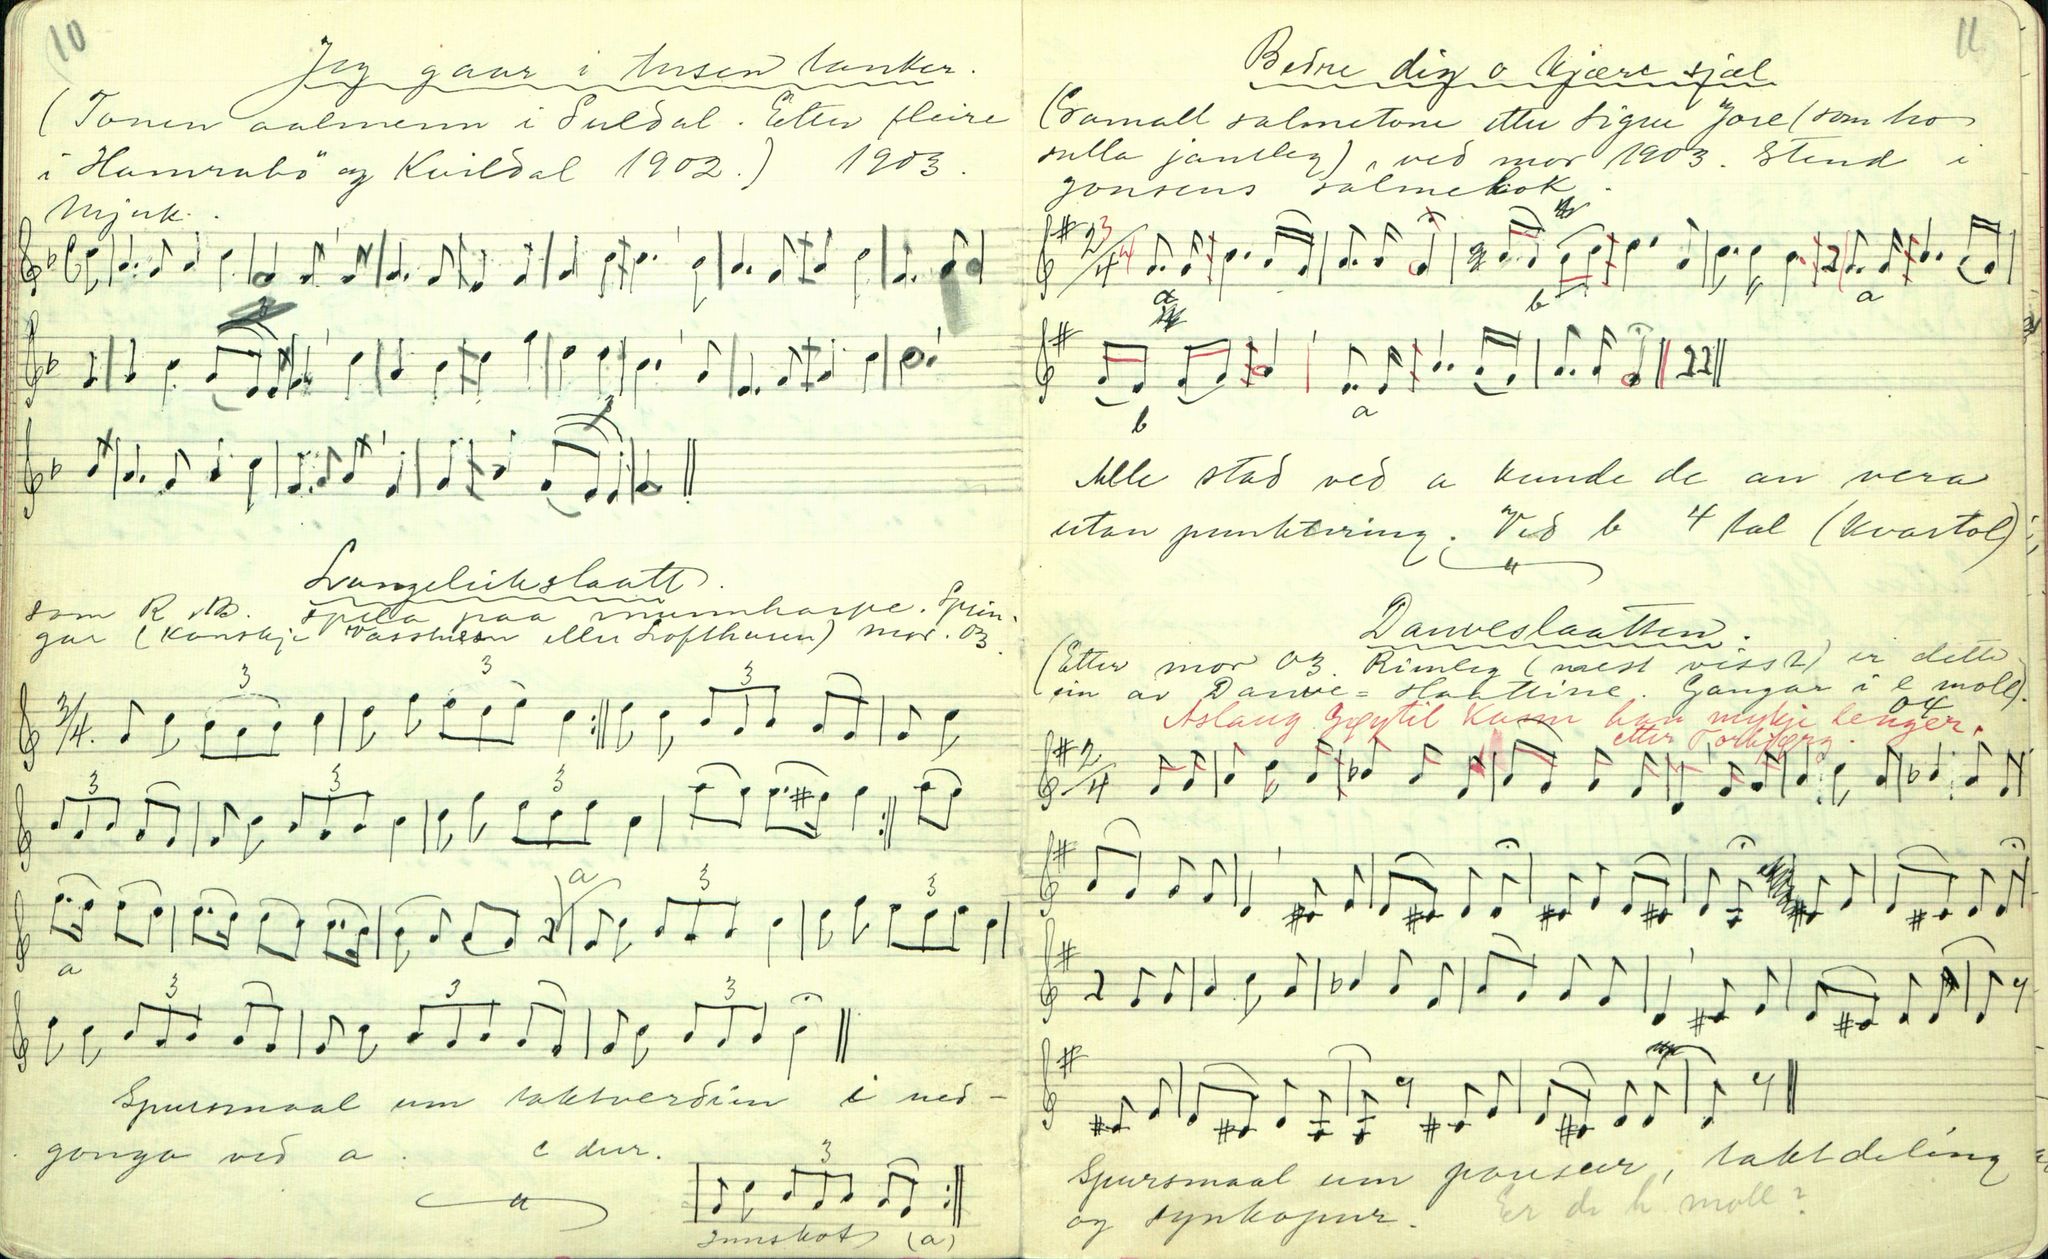 10
Jeg gaar i tusen tanker.
(Tonen aalmenn i Suldal. Etter fleire
i Hamrabø og Kvildal 1902.) 1903.
Mjuk.
Langeleikslaatt.
som R. spela paa munnharpe. Sprin-
gar (Kanskje eller Lofthusen) mor. 03.
3/4.
3 3 3
3 3 3
a 3 3
a
3 3 3
Spursmaal um taktverdien i ned-
gonga ved a. c dur.
3
Innskot (a)
11
Bedre dig o kjære sjæl
(Gamall salmetone etter Signe Jore (som ho
sulla jamleg), ved mor 1903. Stend i
Jonsens salmebok.
2/4 3/4
a b a
b a
Alle stad ved a kunde de an vera
utan punktering. Ved b 4 tal (kvartol)
Danveslaatten.
(Etter mor 03. Rimeleg (mest visst) er dette
ein av Danve-slaattine. Gangar i e moll).
04
Aslaug Gøytil kann han mykje lenger.
etter Torbjørg.
2/4
Spursmaal um pauser, taktdeling
og synkopur. Er de h moll?